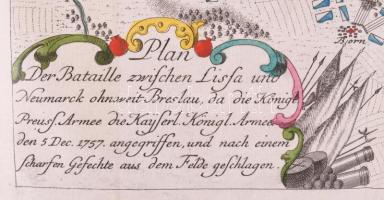 Born
Plan
Der Bataille zwischen Lissa und
Neumarck ohnweit Breslau, da die Königl.
Preuss. Armee die Kayserl. Königl. Armee
den 5 Dec. 1757. angegriffen, und nach einem
scharfen Gefechte aus dem Felde geschlagen.